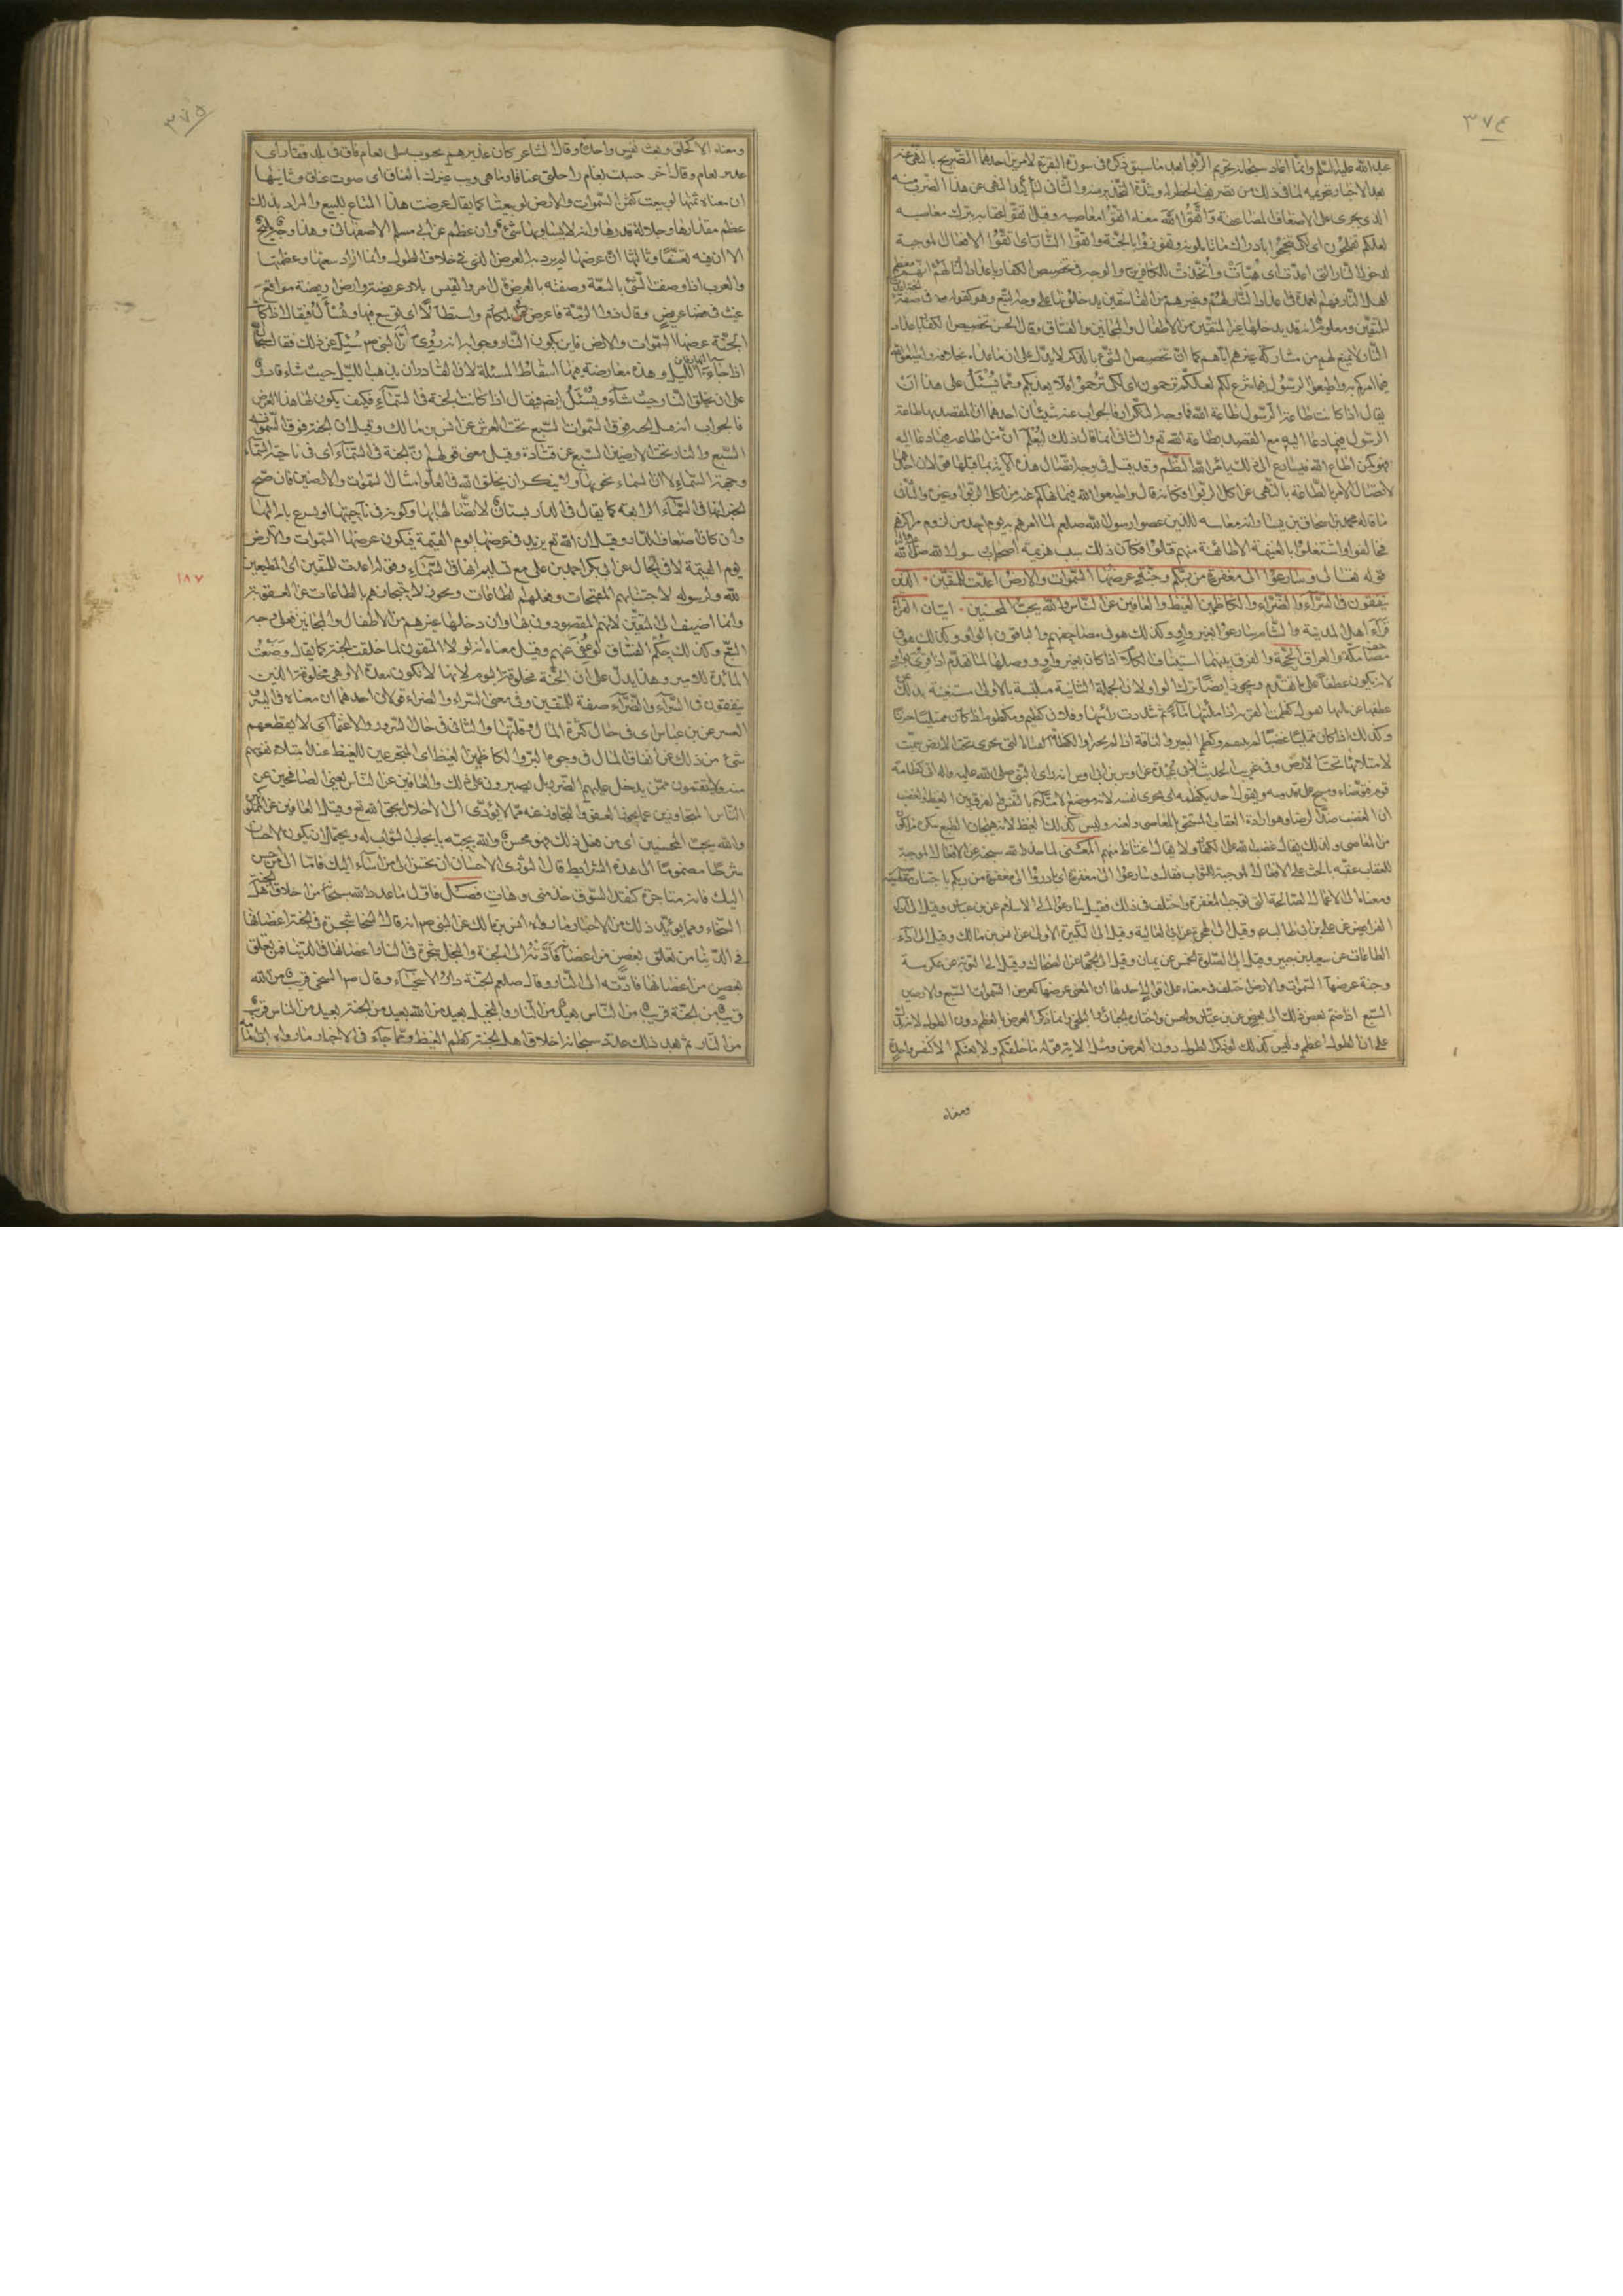 ٣٧٤
عبد الله عليه السلم وانما اعاد سبحانه تحريم الربوا بعد ما سبق ذكره في سورة البقرة لامرين احدهما التصريح بالنهي عنه
بعد الاخبار بتحريمه لما في ذلك من تصريف الحظر له وشدة التحذير منه والثاني لتأكيد النهي عن هذا الضرب منه
الذي يجرى على الاضعاف المضاعفة واتقوا الله معناه اتقوا معاصيه وقيل اتقوا عقابه بترك معاصيه
لعلكم تفلحون اى لكى تنجحوا بادراك ما تاملونه وتفوزوا بالجنة واتقوا النار اى اتقوا الافعال الموجبة
لدخول النار التى اعدت اى هيأت واتخذت للكافرين والوجه في تخصيص الكفار باعداد النار لهم انهم معظم
اهل النار فهم العمدة في اعداد النار لهم وغيرهم من الفاسقين يدخلونها على وجه التبع وهو كقوله وجنة في صفة
المتقين ومعلوم انه قد يدخلها غير المتقين من الاطفال والمجانين والفساق وقال الحسن تخصيص الكفار باعداد
النار لا يمنع من مشاركة غيرهم اياهم كما ان تخصيص الشئ بالذكر لا يدل على ان ما عداه بخلافه واطيعوا الله
فيما امركم به واطيعوا الرسول فيما شرع لكم لعلكم ترحمون اى لكى ترحموا فلا يعذبكم ومما يسئل على هذا ان
يقال اذا كانت طاعة الرسول طاعة الله فما وجه التكرار فالجواب عنه شيئان احدهما ان المقصد بها طاعة
الرسول فيما دعا اليه مع القصد بطاعة الله تم والثاني انما قال ذلك ليعلم ان من طاعه فيما دعا اليه
فهو كمن اطاع الله فيسارع الى ذلك بامر الله النظم وقد قيل في وجه اتصال هذه الآية بما قبلها قولان احدهما
لاتصال الامر بالطاعة بالنهي عن اكل الربوا فكانه قال واطيعوا الله فيما نهاكم عنه من اكل الربوا وغيره والثاني
ما قاله محمد بن اسحاق بن يسار انه معاتبة للذين عصوا رسول الله صلعم لما امرهم به يوم احد من لزوم مراكزهم
فخالفوا واشتغلوا بالغنيمة الا طائفة منهم قالوا فكان ذلك سبب هزيمة اصحاب رسول الله صلى الله
قوله تعالى وسارعوا الى مغفرة من ربكم وجنة عرضها السموات والارض اعدت للمتقين الذين
ينفقون في السراء والضراء والكاظمين الغيظ والعافين عن الناس والله يحب المحسنين ايتان القرأة
قرأ اهل المدينة والشام سارعوا بغير واو وكذلك هو في مصاحفهم والباقون بالواو وكذلك هو في
مصاحف مكة والعراق الحجة والفرق بينهما استيناف الكلام اذا كان بغير واو ووصلها بما تقدم اذا قرئ بواو
لانه يكون عطفا على ما تقدم ويجوز ايضا ترك الواو لان الجملة الثانية ملتبسة بالاولى مستغنية بذلك عن
عطفها عليها
وكذلك اذا كان ممتلئا غضبا لم ينتقم وكظم البعير والناقة اذا لم يجترا والكظامة القناة التى تجرى تحت الارض سميت
لامتلائها تحت الارض وفي غريب الحديث لابي عبيدة عن اوس بن ابي اوس انه راى النبى صلى الله عليه واله اتى كظامة
قوم فتوضاء ومسح على قدميه ويقول احد يكظمه الى مجرى نفسه لانه موضع الامتلاء بالنفس الفرق بين الغيظ والغضب
ان الغضب ضد الرضا وهو ارادة العقاب المستحق بالمعاصى ولعنه وليس كذلك الغيظ لانه هيجان الطبع
من المعاصى ولذلك يقال غضب الله على الكفار ولا يقال اغتاظ منهم المعنى لما حذر الله سبحانه عن الافعال الموجبة
للعقاب عقبه بالحث على الافعال الموجبة للثواب فقال وسارعوا الى مغفرة اى بادروا الى مغفرة من ربكم باجتناب معصيته
ومعناه الى الاعمال الصالحة التى توجب المغفرة واختلف في ذلك فقيل سارعوا الى الاسلام عن ابن عباس وقيل الى اداء
الفرايض عن علي بن ابي طالب ع وقيل الى الهجرة عن ابي العالية وقيل الى التكبيرة الاولى عن انس بن مالك وقيل الى اداء
الطاعات عن سعيد بن جبير وقيل الى الصلوة الخمس عن يمان وقيل الى الجهاد عن الضحاك وقيل الى التوبة عن عكرمة
وجنة عرضها السموات والارض اختلف في معناه على اقوال احدها ان المعنى عرضها كعرض السموات السبع والارضين
السبع اذا ضم بعض ذلك الى بعض عن ابن عباس والحسن واختاره الجبائى البلخى وانما ذكر العرض بالعظم دون الطول لانه يدل
على ان الطول اعظم وليس كذلك لو ذكر الطول دون العرض ومثل الاية قوله ما خلقكم ولا بعثكم الا كنفس واحدة
ومعناه
٣٧٥
ومعناه الا كخلق وبعث نفس واحدة وقال الشاعر كان عذيرهم بجنوب سلى نعام قاق في بلد قفار اى
عذير نعام وقال اخر حسبت بغام راحلتى عناقا وما هى ويب غيرك بالعناق اى صوت عناق وثانيها
ان معناه ثمنها لو بيعت كثمن السموات والارض لو بيعتا كما يقال عرضت هذا المتاع للبيع والمراد بذلك
عظم مقدارها وجلالة قدرها وانه لا يساويها شئ وان عظم عن ابي مسلم الاصفهاني وهذا وجه مليح
الا ان فيه تعسفا وثالثها ان عرضها لم يرد به العرض الذي هو خلاف الطول وانما اراد سعتها وعظمها
والعرب اذا وصفت الشئ بالسعة وصفته بالعرض قال امرؤ القيس بلاد عريضة وارض اريضة مدافع
غيث في فضاء عريض وقال ذو الرمة فاعرض في المكارم واستطالا اى توسع فيها ويسأل فيقال اذا كانت
الجنة عرضها السموات والارض فاين يكون النار وجوابه انه روى ان النبى ص سئل عن ذلك فقال سبحان الله
اذا جاء النهار فاين الليل وهذه معارضة فيها اسقاط المسئلة لان القادر ان يذهب بالليل حيث شاء قادر
على ان يخلق النار حيث شاء ويسئل ايضا فيقال اذا كانت الجنة في السماء فكيف يكون لها هذا العرض
فالجواب انه قيل الجنة فوق السموات السبع تحت العرش عن انس بن مالك وقيل ان الجنة فوق السموات
السبع والنار تحت الارضين السبع عن قتادة وقيل معنى قولهم ان الجنة في السماء اى في ناحية السماء
وجهة السماء لا ان السماء تحويها ولا ينكر ان يخلق الله في العلو امثال السموات والارضين فان صح
الخبر انها في السماء الرابعة كما يقال في الدار بستان لاتصالها بها وكونه في ناحيتها او يشرع بابه اليها
وان كان اضعاف الدار وقيل ان الله تم يزيد في عرضها يوم القيمة فيكون عرضها السموات والارض
يوم القيمة لا في الحال عن ابي بكر احمد بن على مع تسليم انها في السماء وقوله اعدت للمتقين اى المطيعين
لله ولرسوله لاجتنابهم المقبحات وفعلهم الطاعات ويجوز لاحتجازهم بالطاعات عن العقوبة
وانما اضيفت الى المتقين لانهم المقصودون بها وان دخلها غيرهم من الاطفال والمجانين فعلى وجه
التبع وكذلك حكم الفساق لو عفى عنهم وقيل معناه انه لو لا المتقون لما خلقت الجنة كما يقال وضعت
المائدة للامير وهذا يدل على ان الجنة مخلوقة اليوم لانها لا تكون معدة الا وهى مخلوقة الذين
ينفقون في السراء والضراء صفة للمتقين وفي معنى السراء والضراء قولان احدهما ان معناه في اليسر و
العسر عن ابن عباس اى في حال كثرة المال وقلته والثاني في حال السرور والاغتمام اى لا يقطعهم
شئ من ذلك عن انفاق المال في وجوه البر والكاظمين الغيظ اى المتجرعين للغيظ عند امتلاء نفوسهم
منه فلا ينتقمون ممن يدخل عليهم الضرر بل يصبرون على ذلك والعافين عن الناس يعنى الصافحين عن
الناس المتجاوزين عما يجوز العفو والتجاوز عنه مما لا يؤدى الى الاخلال بحق الله تم وقيل العافين عن المملوكين
والله يحب المحسنين اى من فعل ذلك فهو محسن والله يحبه بايجاب الثواب له ويحتمل ان يكون الاحسان
شرطا مضموما الى هذه الشرايط قال الثورى الاحسان ان تحسن الى من اساء اليك فاما من احسن
اليك فانه متاجرة كنقد السوق خذ منى وهات فصل فاول ما عدد الله سبحانه من اخلاق اهل الجنة
السخاء ومما يؤيد ذلك من الاخبار ما رواه انس بن مالك عن النبى ص انه قال السخاء شجرة في الجنة اغصانها
في الدنيا من تعلق بغصن من اغصانها قادته الى الجنة والبخل شجرة في النار اغصانها في الدنيا فمن تعلق
بغصن من اغصانها قادته الى النار وقال صلعم الجنة دار الاسخياء وقال ص السخى قريب من الله
قريب من الجنة قريب من الناس بعيد من النار والبخيل بعيد من الله بعيد من الجنة بعيد من الناس قريب
من النار ثم بعد ذلك عدد سبحانه اخلاق اهل الجنة كظم الغيظ ومما جاء في الاخبار ما رواه ابو امامة
١٨٧